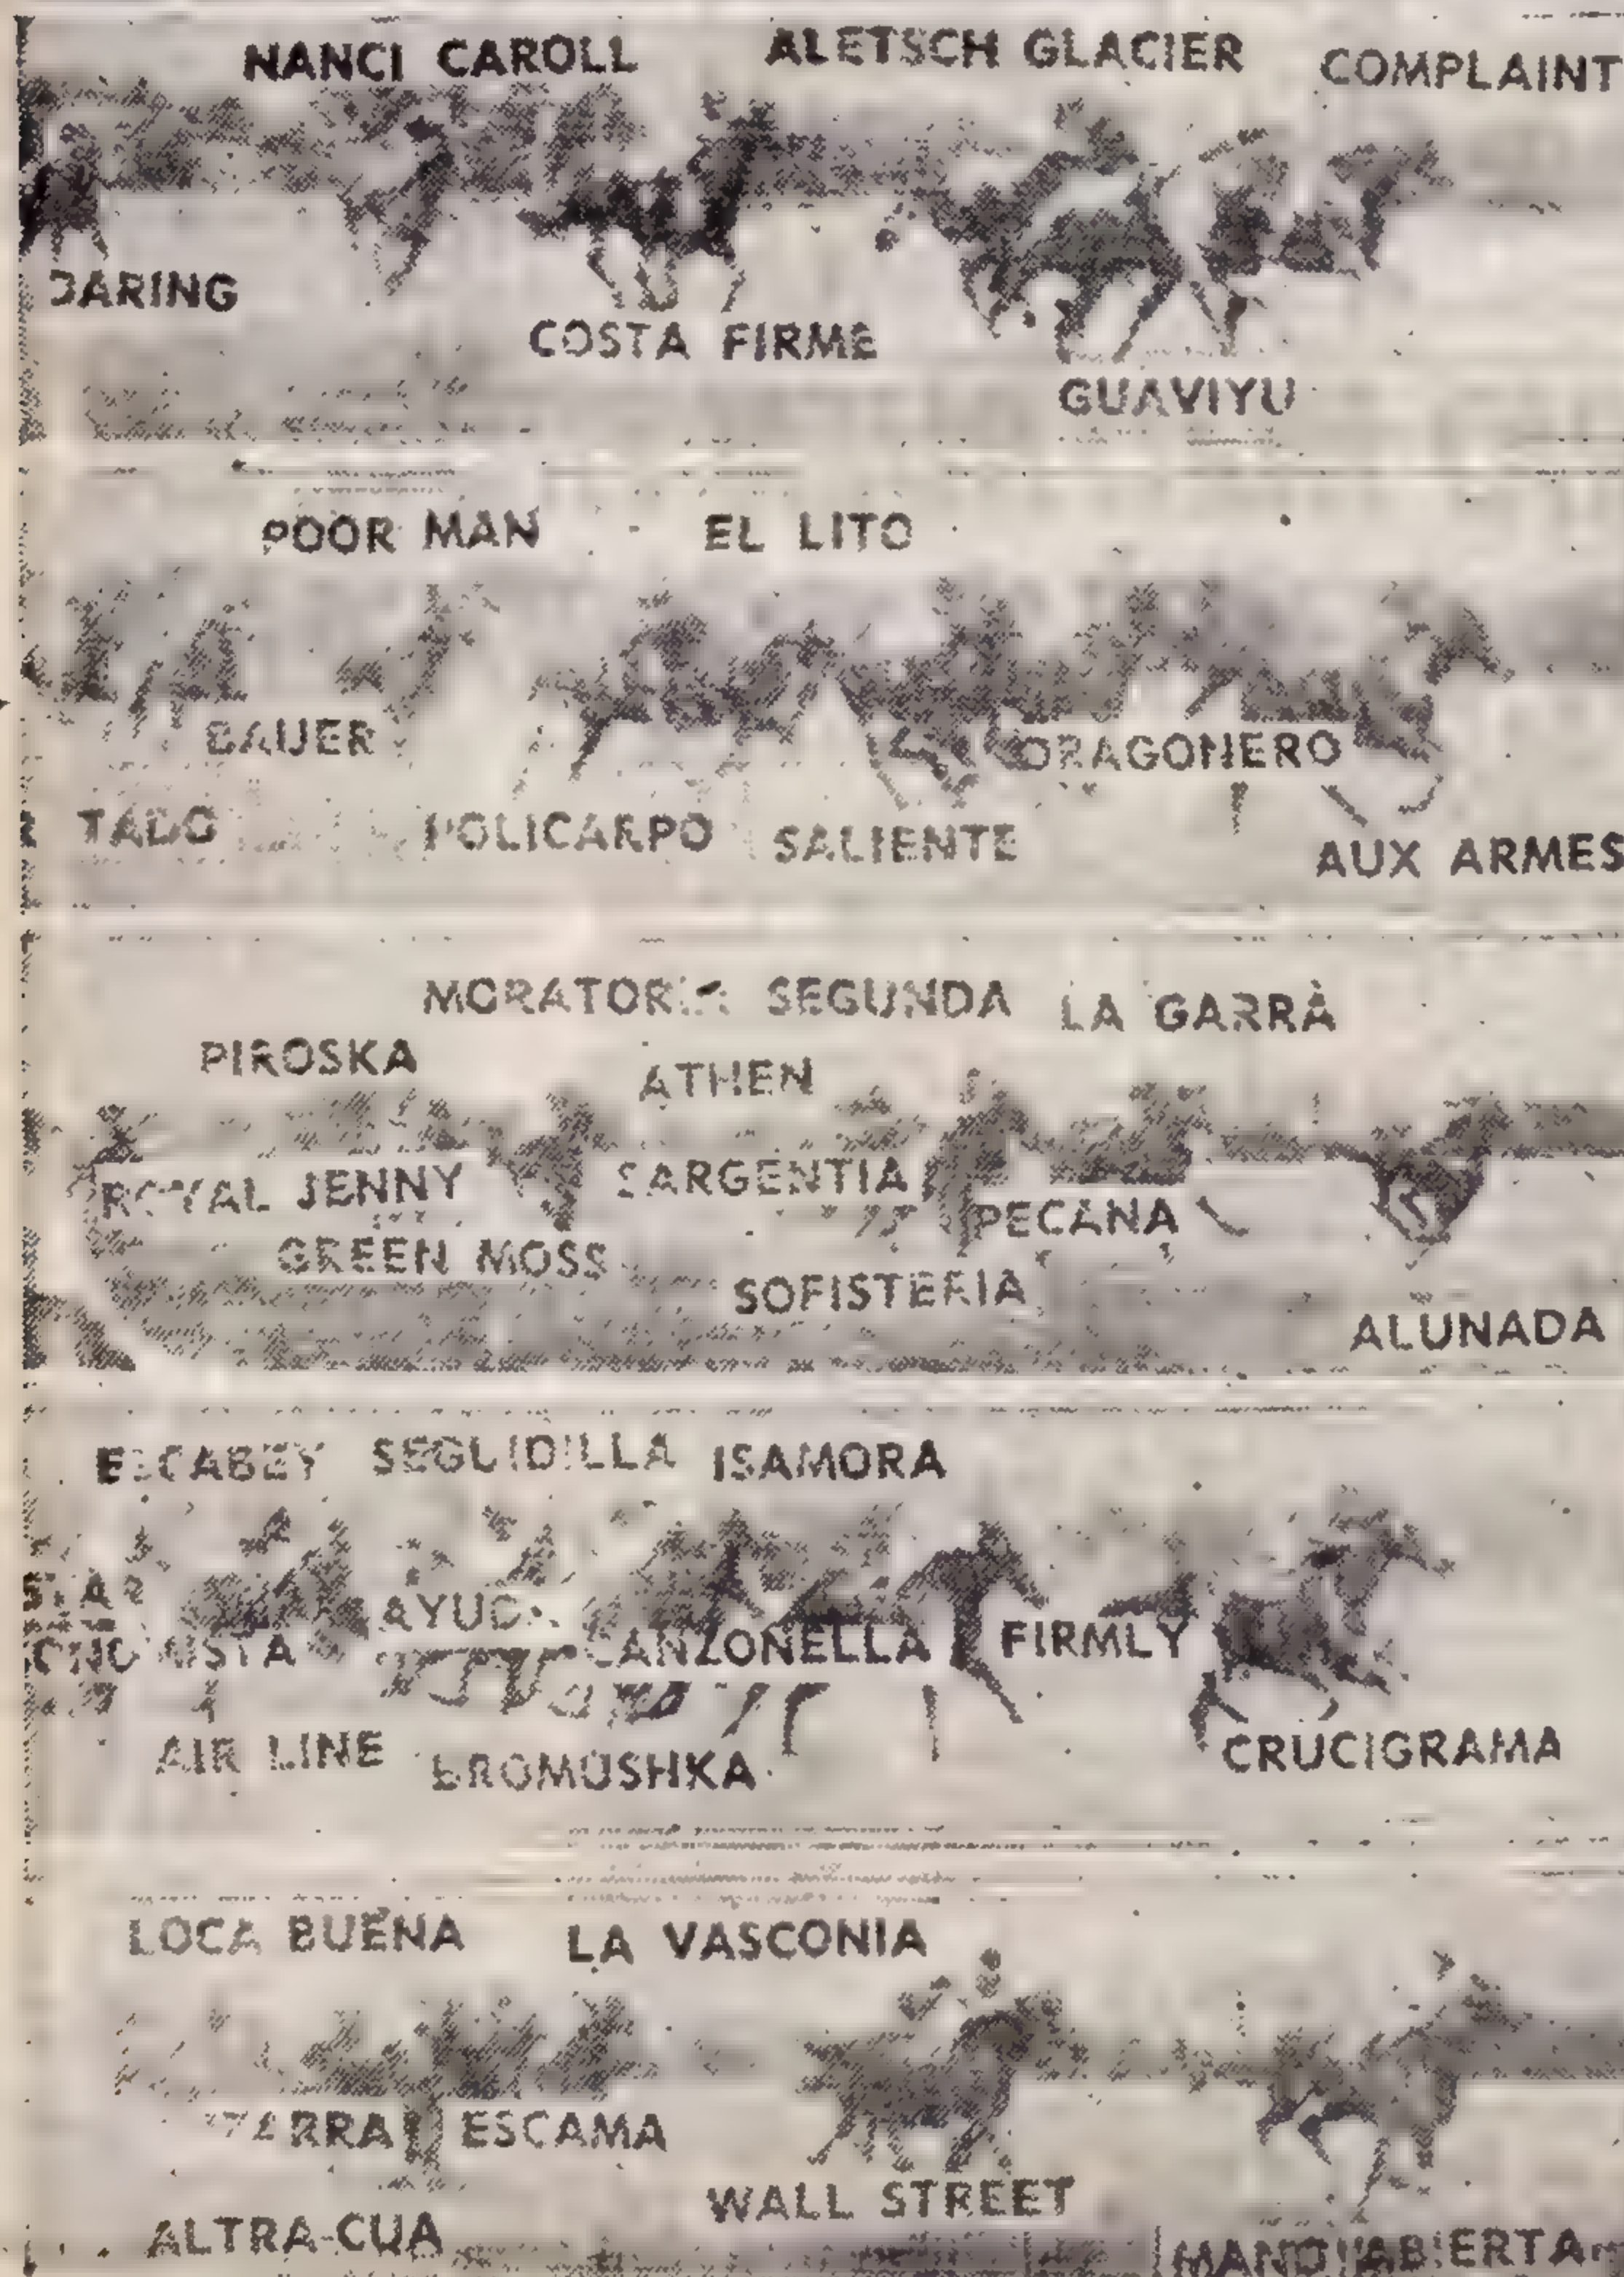 NANCI CAROLL ALETSCH GLACIER COMPLAINT
DARING
COSTA FIRME
GUAVIYU
POOR MAN EL LITO
BAUER DRAGONERO
POLICARPO SALIENTE AUX ARMES
MORATORIA SEGUNDA LA GARRA
PIROSKA ATHEN
ROYAL JENNY SARGENTIA PECANA
GREEN MOSS SOFISTERIA
ALUNADA
ESCABEY SEGUIDILLA ISAMORA
CANZONELLA FIRMLY
AIR LINE BROMUSHKA CRUCIGRAMA
LOCA BUENA LA VASCONIA
ESCAMA
WALL STREET
ALTRA-CUA MANO ABIERTA